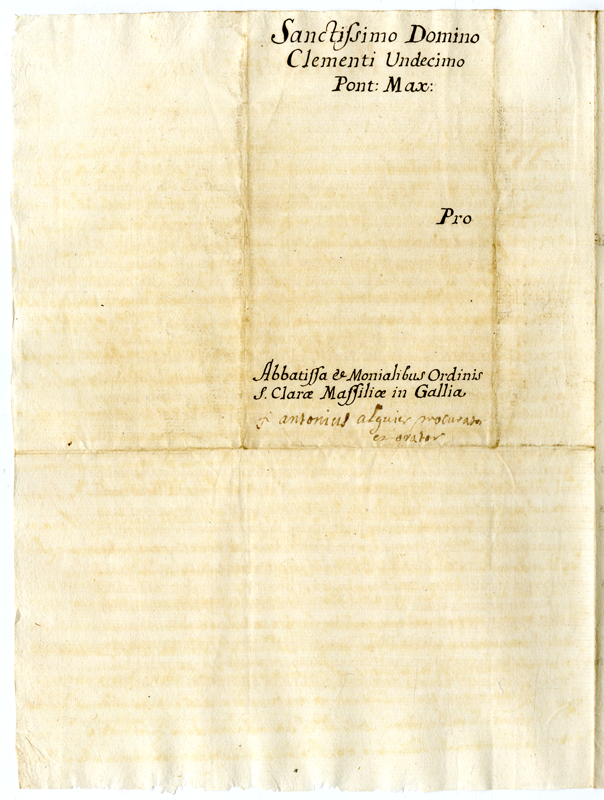 Sanctiſsimo Domino
Clementi Undecimo
Pont: Max:
Pro
Abbatiſſa & Monialibus Ordinis
S. Claræ Maſſiliæ in Gallia
antonius alguier procurator
et orator